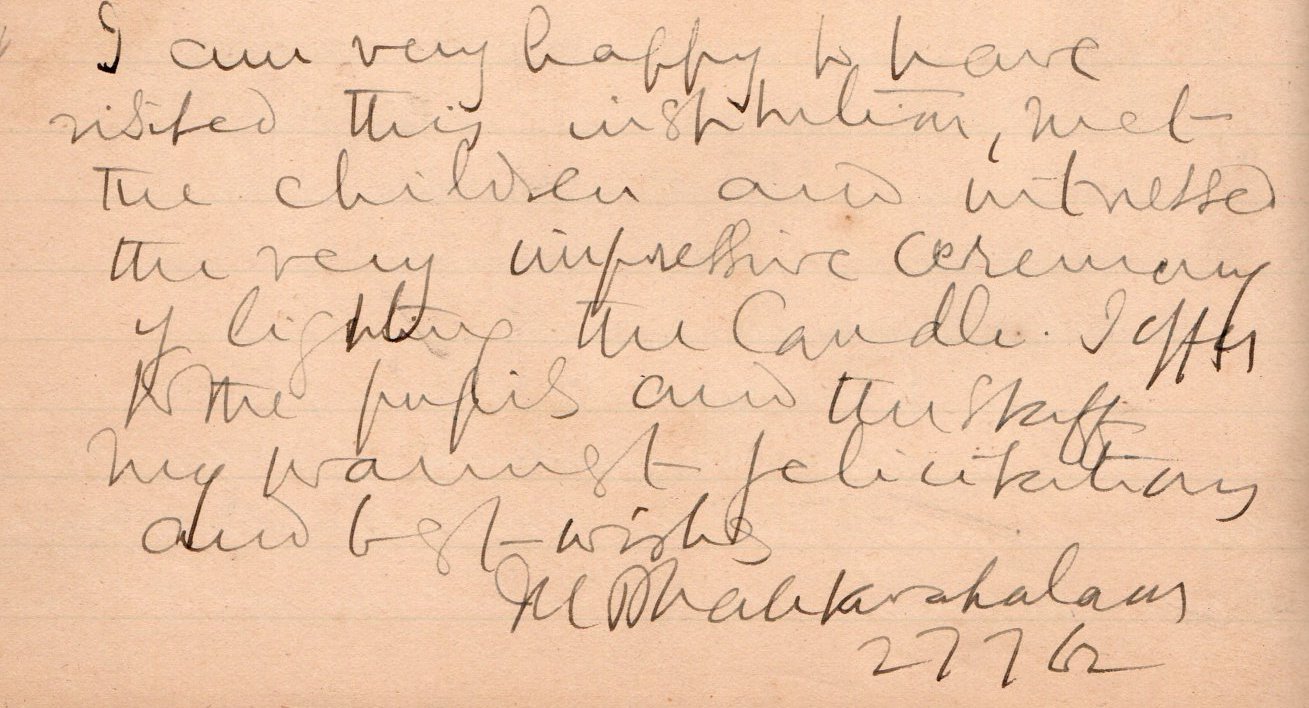 I am very happy to have
visited this institution, met
the children and witnessed
the very impressive ceremony
of lighting the Candle. I offer
to the pupils and the staff
my warmest felicitations
and best wishes
M Bhaktavatsalam
27 7 62